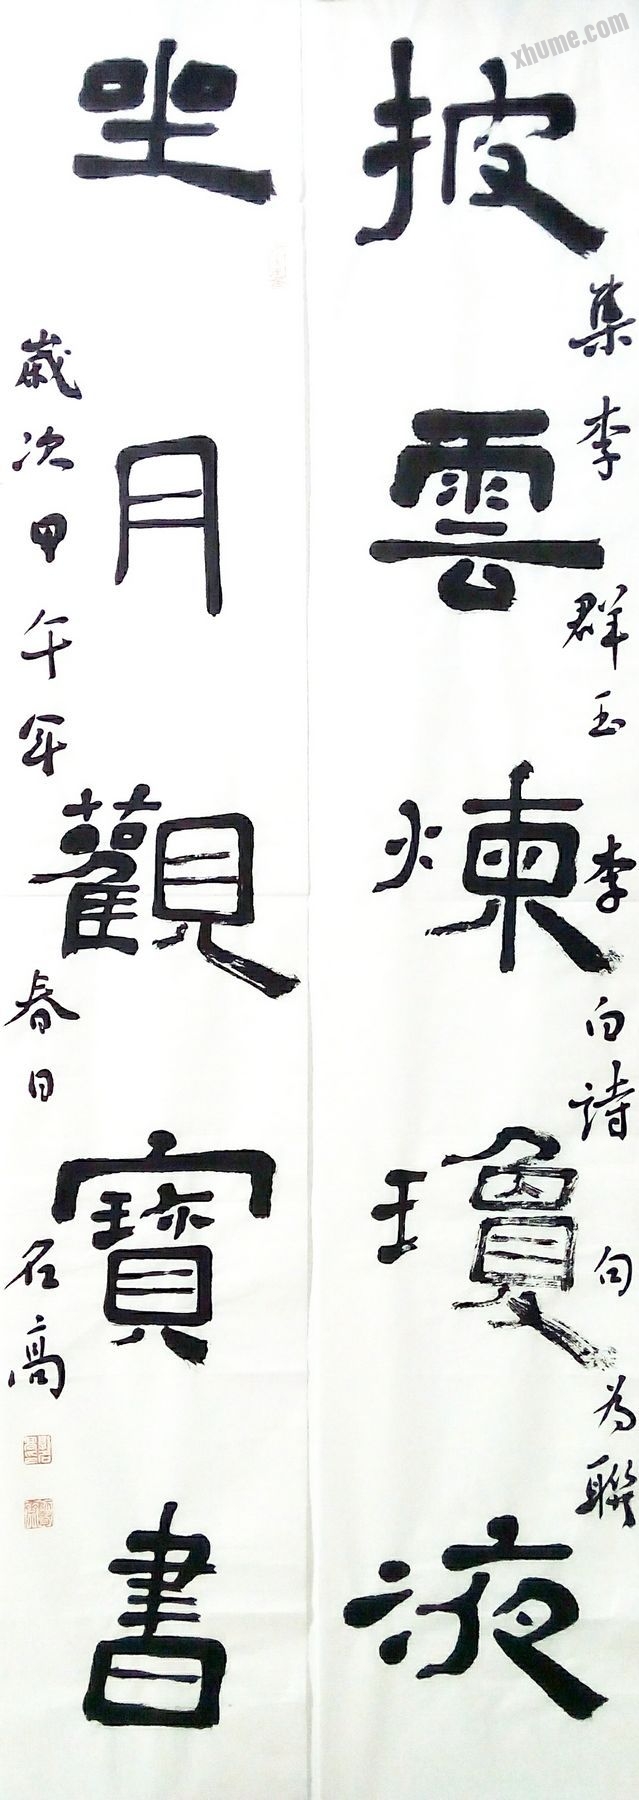 xhume.com
披雲煉瓊液
集李群玉李白詩句為聯
坐月觀寶書
歲次甲午年春日石高